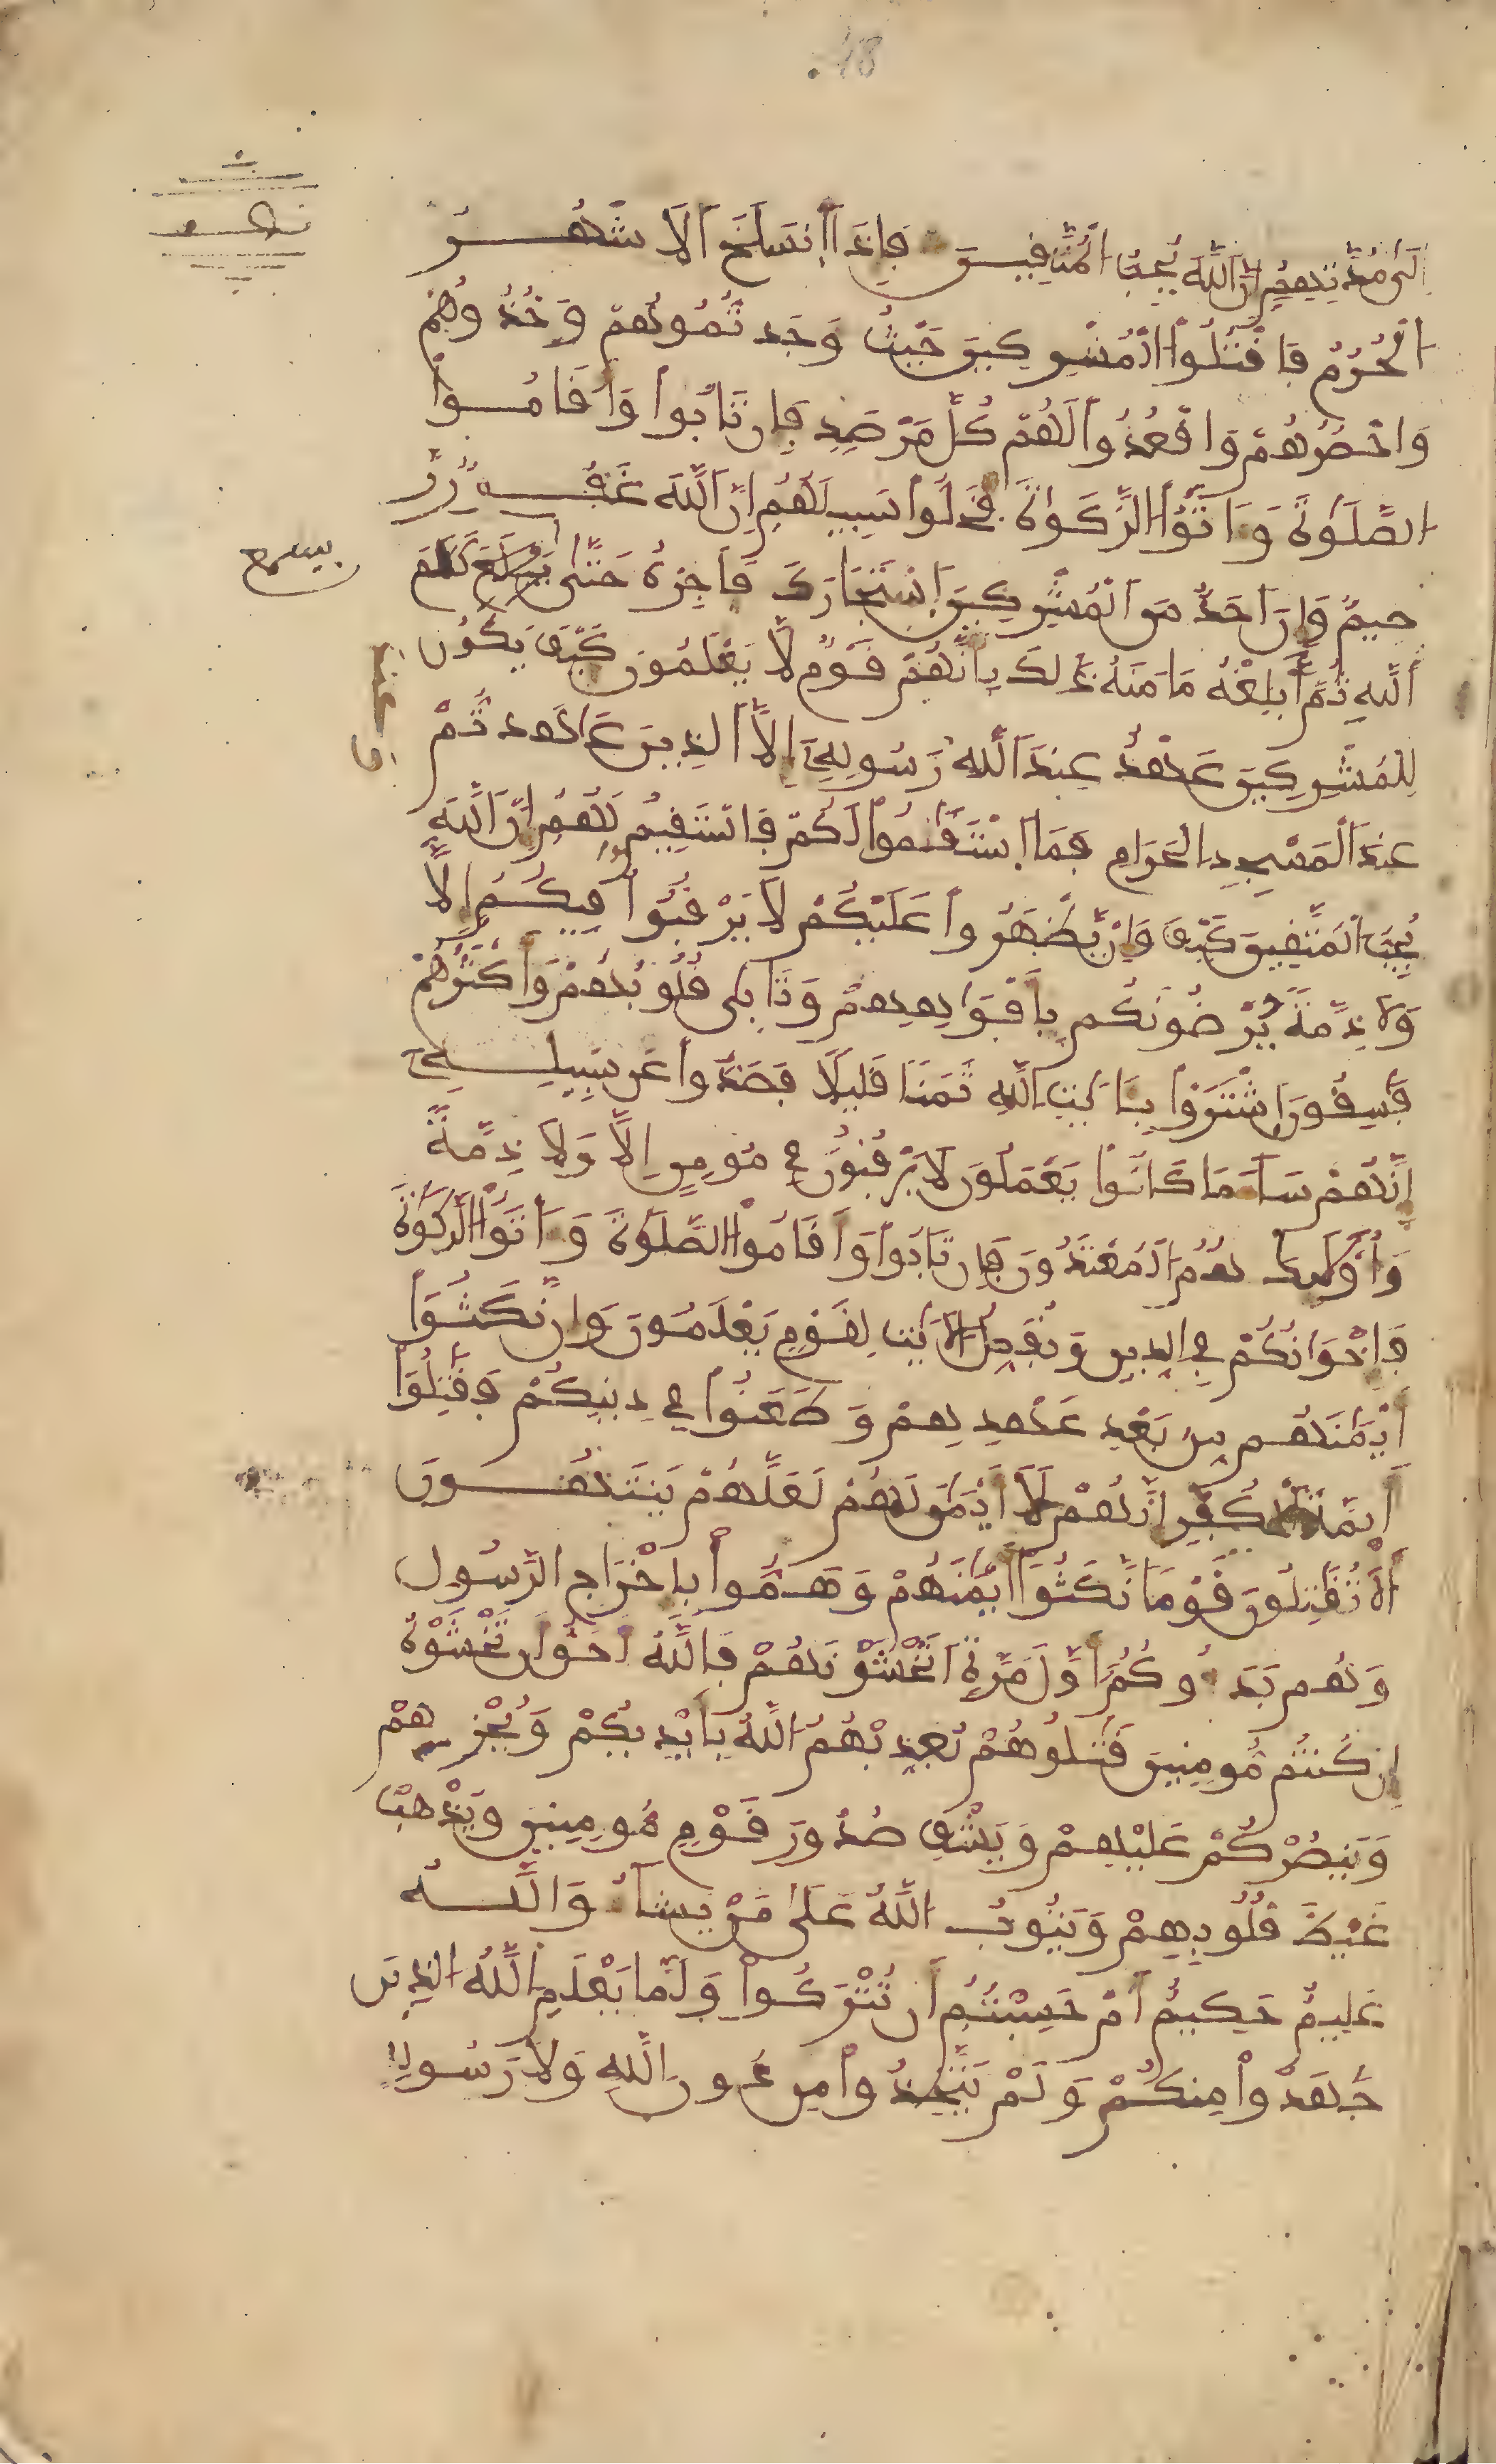 18.
إِلَىٰ مُدَّتِهِمُ إِنَّ ٱللَّهَ يُحِبُّ ٱلْمُتَّفِينَ فَإِذَا ٱنسَلَخَ ٱلَاشْهُرُ
ٱلْحُرُمُ فَاقْتُلُواْ ٱلْمُشْرِكِينَ حَيْثُ وَجَدتُّمُوهُمْ وَخُذُوهُمْ
وَاحْصُرُوهُمْ وَاقْعُدُواْ لَهُمْ كُلَّ مَرْصَدٍ فَإِن تَابُواْ وَأَقَامُواْ
ٱلصَّلَوٰةَ وَءَاتَوُاْ ٱلزَّكَوٰةَ فَخَلُّواْ سَبِيلَهُمُ إِنَّ ٱللَّهَ غَفُورٌ رَّ
حِيمٌ وَإِنَ اَحَدٌ مِّنَ ٱلْمُشْرِكِينَ ٱسْتَجَارَكَ فَأَجِرْهُ حَتَّىٰ يَسْمَعَ كَلَٰمَ
يسمع
ٱللَّهِ ثُمَّ أَبْلِغْهُ مَامَنَهُ ذَٰلِكَ بِأَنَّهُمْ قَوْمٌ لَّا يَعْلَمُونَ كَيْفَ يَكُونُ
لِلْمُشْرِكِينَ عَهْدٌ عِندَ ٱللَّهِ رَسُولِهِۦ إِلَّا ٱلذِينَ عَٰهَدتُّمْ
عِندَ ٱلْمَسْجِدِ ٱلْحَرَامِ فَمَا ٱسْتَقَٰمُواْ لَكُمْ فَاسْتَقِيمُواْ لَهُمُ إِنَّ ٱللَّهَ
يُحِبُّ ٱلْمُتَّقِينَ كَيْفَ وَإِنْ يَّظْهَرُواْ عَلَيْكُمْ لَا يَرْقُبُواْ فِيكُمُ إِلّاً
وَلَا ذِمَّةً يُرْضُونَكُم بِأَفْوَاهِهِمْ وَتَابِىٰ قُلُوبُهُمْ وَأَكْثَرُهُمْ
فَٰسِقُونَ ٱشْتَرَوْاْ بِـَٔايَٰتِ ٱللَّهِ ثَمَناً قَلِيلًا فَصَدُّواْ عَن سَبِيلِهِۦ
إِنَّهُمْ سَآءَ مَا كَانُواْ يَعْمَلُونَ لَا يَرْقُبُونَ فِى مُومِنٍ إِلّاً وَلَا ذِمَّةً
وَأُوْلَٰئِكَ هُمُ ٱلْمُعْتَدُونَ فَإِن تَابُواْ وَأَقَامُواْ ٱلصَّلَوٰةَ وَءَاتَوُاْ ٱلزَّكَوٰةَ
فَإِخْوَانُكُمْ فِى ٱلدِّينِ وَنُفَصِّلُ ٱلَايَٰتِ لِقَوْمٍ يَعْلَمُونَ وَإِن نَّكَثُواْ
أَيْمَٰنَهُم مِّن بَعْدِ عَهْدِهِمْ وَطَعَنُواْ فِى دِينِكُمْ فَقَٰتِلُواْ
أَيِمَّةَ ٱلْكُفْرِ إِنَّهُمْ لَا أَيْمَٰنَ لَهُمْ لَعَلَّهُمْ يَنتَهُونَ
أَلَا تُقَٰتِلُونَ قَوْماً نَّكَثُواْ أَيْمَٰنَهُمْ وَهَمُّواْ بِإِخْرَاجِ ٱلرَّسُولِ
وَهُم بَدَءُوكُمُ أَوَّلَ مَرَّةٍ اَتَخْشَوْنَهُمْ فَاللَّهُ أَحَقُّ أَن تَخْشَوْهُ
إِن كُنتُم مُّومِنِينَ قَٰتِلُوهُمْ يُعَذِّبْهُمُ ٱللَّهُ بِأَيْدِيكُمْ وَيُخْزِهِمْ
وَيَنصُرْكُمْ عَلَيْهِمْ وَيَشْفِ صُدُورَ قَوْمٍ مُّومِنِينَ وَيُذْهِبْ
غَيْظَ قُلُوبِهِمْ وَيَتُوبُ ٱللَّهُ عَلَىٰ مَنْ يَّشَآءُ وَٱللَّهُ
عَلِيمٌ حَكِيمٌ أَمْ حَسِبْتُمُ أَن تُتْرَكُواْ وَلَمَّا يَعْلَمِ ٱللَّهُ ٱلذِينَ
جَٰهَدُواْ مِنكُمْ وَلَمْ يَتَّخِذُواْ مِن دُونِ ٱللَّهِ وَلَا رَسُولِهِ